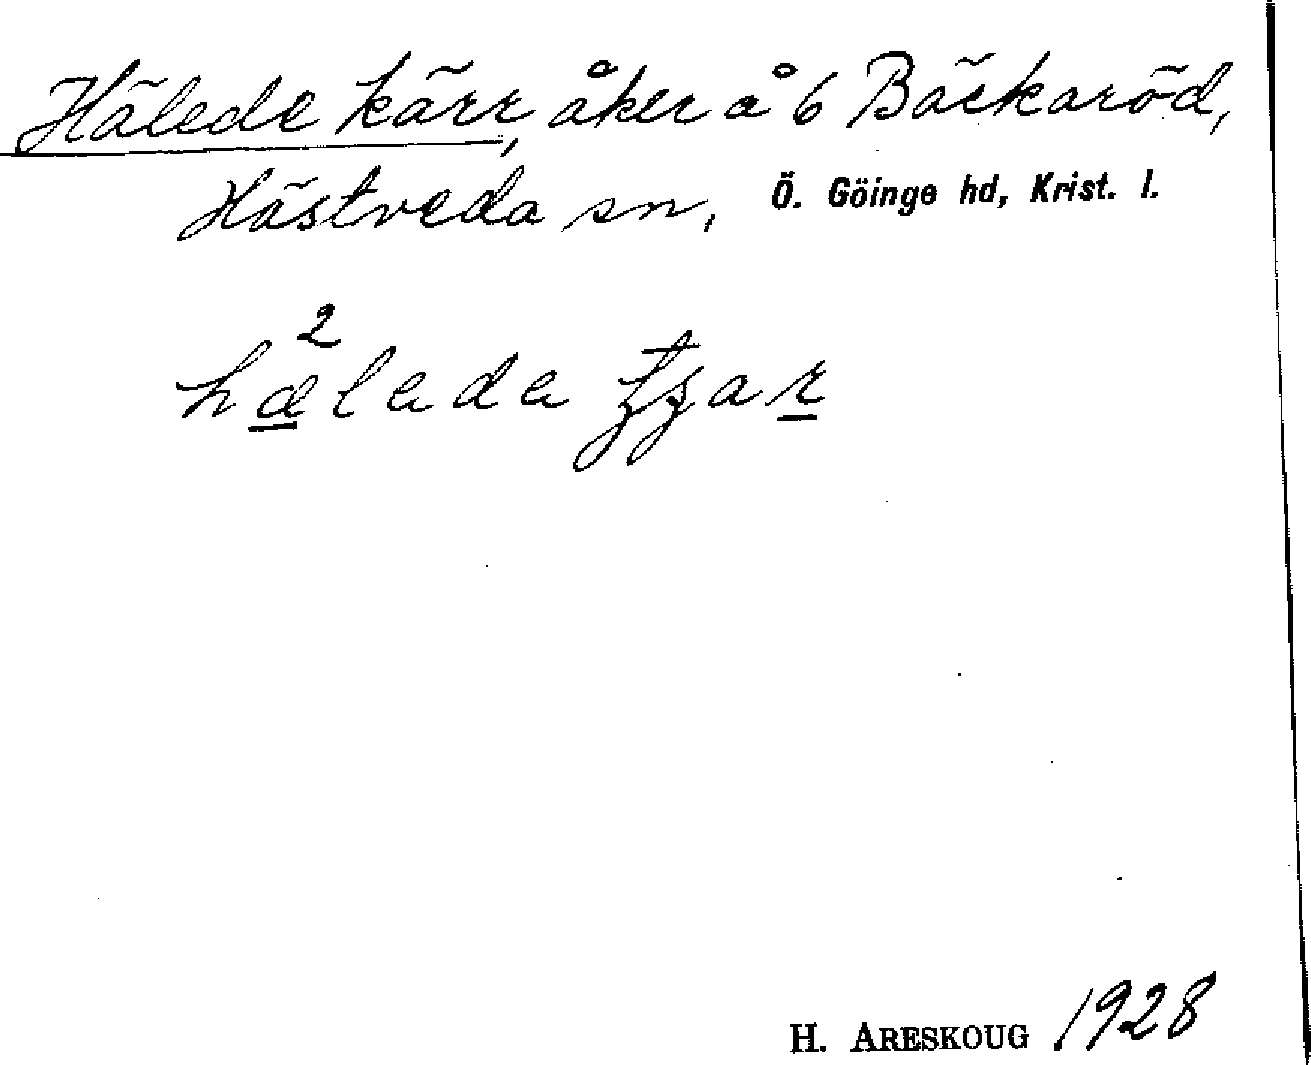 Hälede kärr, åker å 6 Bäckaröd,
Hästveda sn, Ö. Göinge hd, Krist. l.
H. ARESKOUG 1928